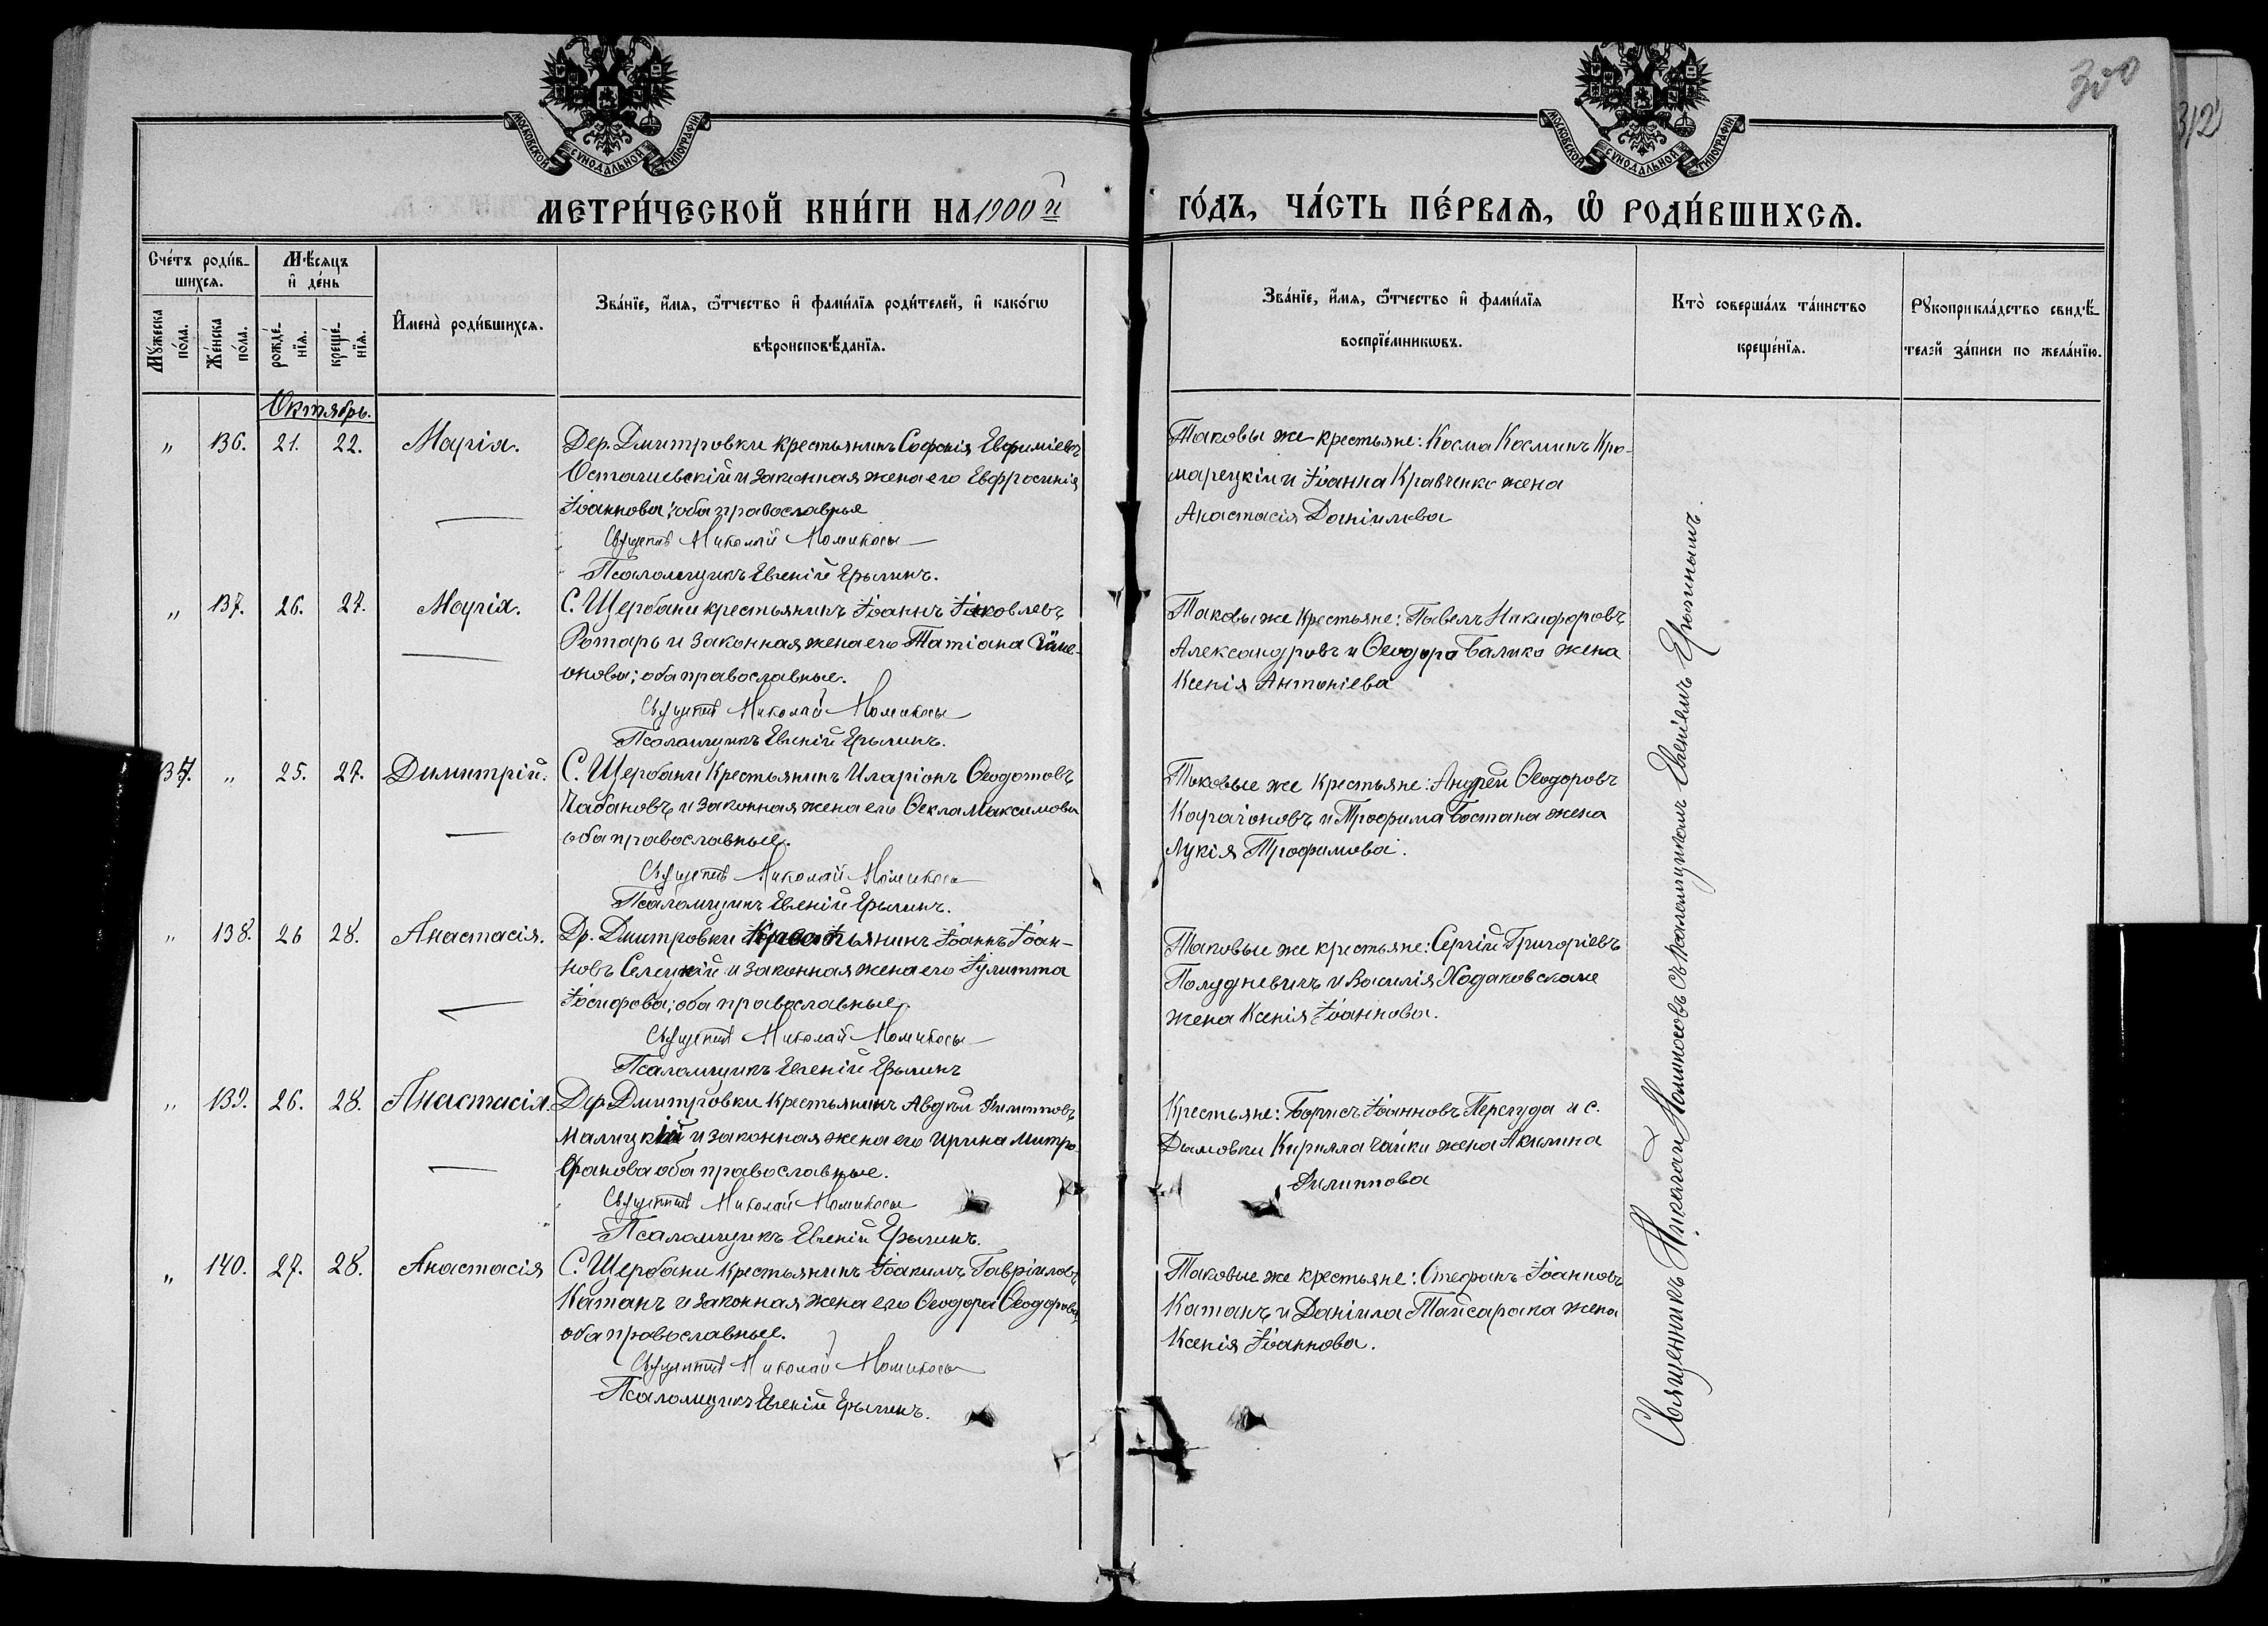 300
312
МОСКОВСКОЙ СѴНОДАЛЬНОЙ ТИПОГРАФІИ
МОСКОВСКОЙ СѴНОДАЛЬНОЙ ТИПОГРАФІИ
МЕТРИ́ЧЕСКОЙ КНИ́ГИ НА 1900 й ГО́ДЪ, ЧА́СТЬ ПЕ́РВАЯ, Ѿ РОДИ́ВШИХСЯ.
Сче́тъ роди́в-
шихся.
Мѹ́жеска по́ла.
Же́нска по́ла.
Мѣ́сяцъ
и҆ де́нь
рожде́-
нїя.
креще́-
нїя.
И҆мена̀ роди́вшихся.
Зва́нїе, и҆́мя, ѻ҆́тчество и҆ фами́лїя роди́телей, и҆ како́гѡ
вѣроисповѣ́данїя.
Зва́нїе, и҆́мя, ѻ҆́тчество и҆ фами́лїя
воспрїе́мникѡвъ.
Кто̀ соверша́лъ та́инство
креще́нїя.
Рѹкоприкла́дство свидѣ́-
телей за́писи по жела́нїю.
Октябрь.
„ 136. 21. 22. Марія.
Дер. Дмитровки крестьянинъ Софонія Евфиміевъ
Осташевскій и законная жена его Евфросинія
Іоаннова; оба православныя
Священникъ Николай Номикосъ
Псаломщикъ Евгеній Ерыгинъ.
Таковы же крестьяне: Косма Косминъ Кро-
марецкій и Іоанна Кравченко жена
Анастасія Даніилова
„ 137. 26. 27. Марія.
С. Щербани крестьянинъ Іоаннъ Іаковлевъ
Ротарь и законная жена его Татіана Симе-
онова; оба православные.
Священникъ Николай Номикосъ
Псаломщикъ Евгеній Ерыгинъ.
Таковы же крестьяне: Павелъ Никифоровъ
Александровъ и Ѳеодора Балико жена
Ксенія Антоніева
137. „ 25. 27. Димитрій.
С. Щербани Крестьянинъ Иларіонъ Ѳеодотовъ
Чабановъ и законная жена его Ѳекла Максимова
оба православные.
Священникъ Николай Номикосъ
Псаломщикъ Евгеній Ерыгинъ.
Таковые же крестьяне: Андрей Ѳеодоровъ
Карагіоновъ и Трофима Бостана жена
Лукія Трофимова.
„ 138. 26 28. Анастасія.
Др. Дмитровки Крестьянинъ Іоаннъ Іоан-
новъ Селецкій и законная жена его Іулитта
Іосифова; оба православные.
Священникъ Николай Номикосъ
Псаломщикъ Евгеній Ерыгинъ
Таковые же крестьяне: Сергій Григоріевъ
Полудневичъ и Василія Ходаковскаго
жена Ксенія Іоаннова.
„ 139. 26. 28. Анастасія.
Дер. Дмитровки крестьянинъ Авдѣй Филипповъ
Малицкій и законная жена его Ирина Митро-
фанова оба православные.
Священникъ Николай Номикосъ
Псаломщикъ Евгеній Ерыгинъ.
Крестьяне: Борисъ Іоанновъ Перегуда и с.
Дымовки Кирилла Чайки жена Акилина
Филиппова
„ 140. 27. 28. Анастасія
С. Щербани крестьянинъ Іоакимъ Гавріиловъ
Катанъ и законная жена его Ѳеодора Ѳеодорова,
оба православные.
Священникъ Николай Номикосъ
Псаломщикъ Евгеній Ерыгинъ.
Таковые же крестьяне: Стефанъ Іоанновъ
Катанъ и Даніила Тайсарака жена
Ксенія Іоаннова.
Священникъ Николай Номикосовъ съ псаломщикомъ Евгеніемъ Ерыгинымъ.